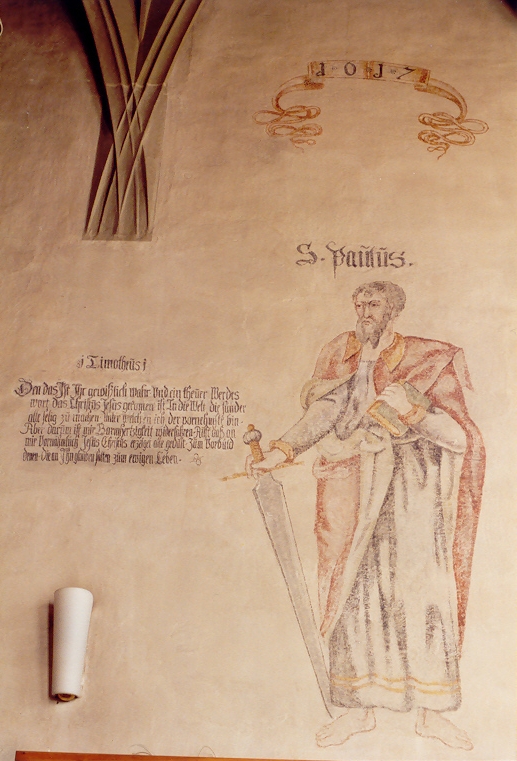 1 0 1 7
S. Paulus.
1 Timotheüs 1
Den das Jst Jhr gewißlich wahr Vnd ein theüer Werdes
wort das Christus Jesus gekomen ist Jn die Welt, die sünder
selig zu machen vnder welchen ich der vornehmste bin
Aber darum ist mir Barmhertzikeit widerfahren Auff das an
mir Vornemlich Jesus Christus erzeiget alle gedult. Zum Vorbild
denen die an Jhn glauben solten zum ewigen Leben.